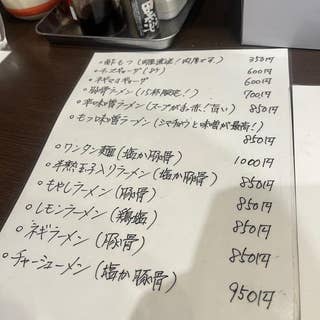 ・酢もつ(
350円
・チーズギョーザ(5ケ)
600円
・ネギマヨギョーザ
600円
・豚骨ラーメン(15杯限定!)
700円
・辛味噌ラーメン(スープが
旨い) 850円
・もつ味噌ラーメン(シマチョウと味噌が最高!)
850円
○ワンタン麺(塩か豚骨)
1000円
○半熟玉子入りラーメン(塩か豚骨)
850円
○もやしラーメン(豚骨)
850円
○レモンラーメン(鶏塩)
850円
○ネギラーメン(豚骨)
850円
○チャーシューメン(塩か豚骨)
950円